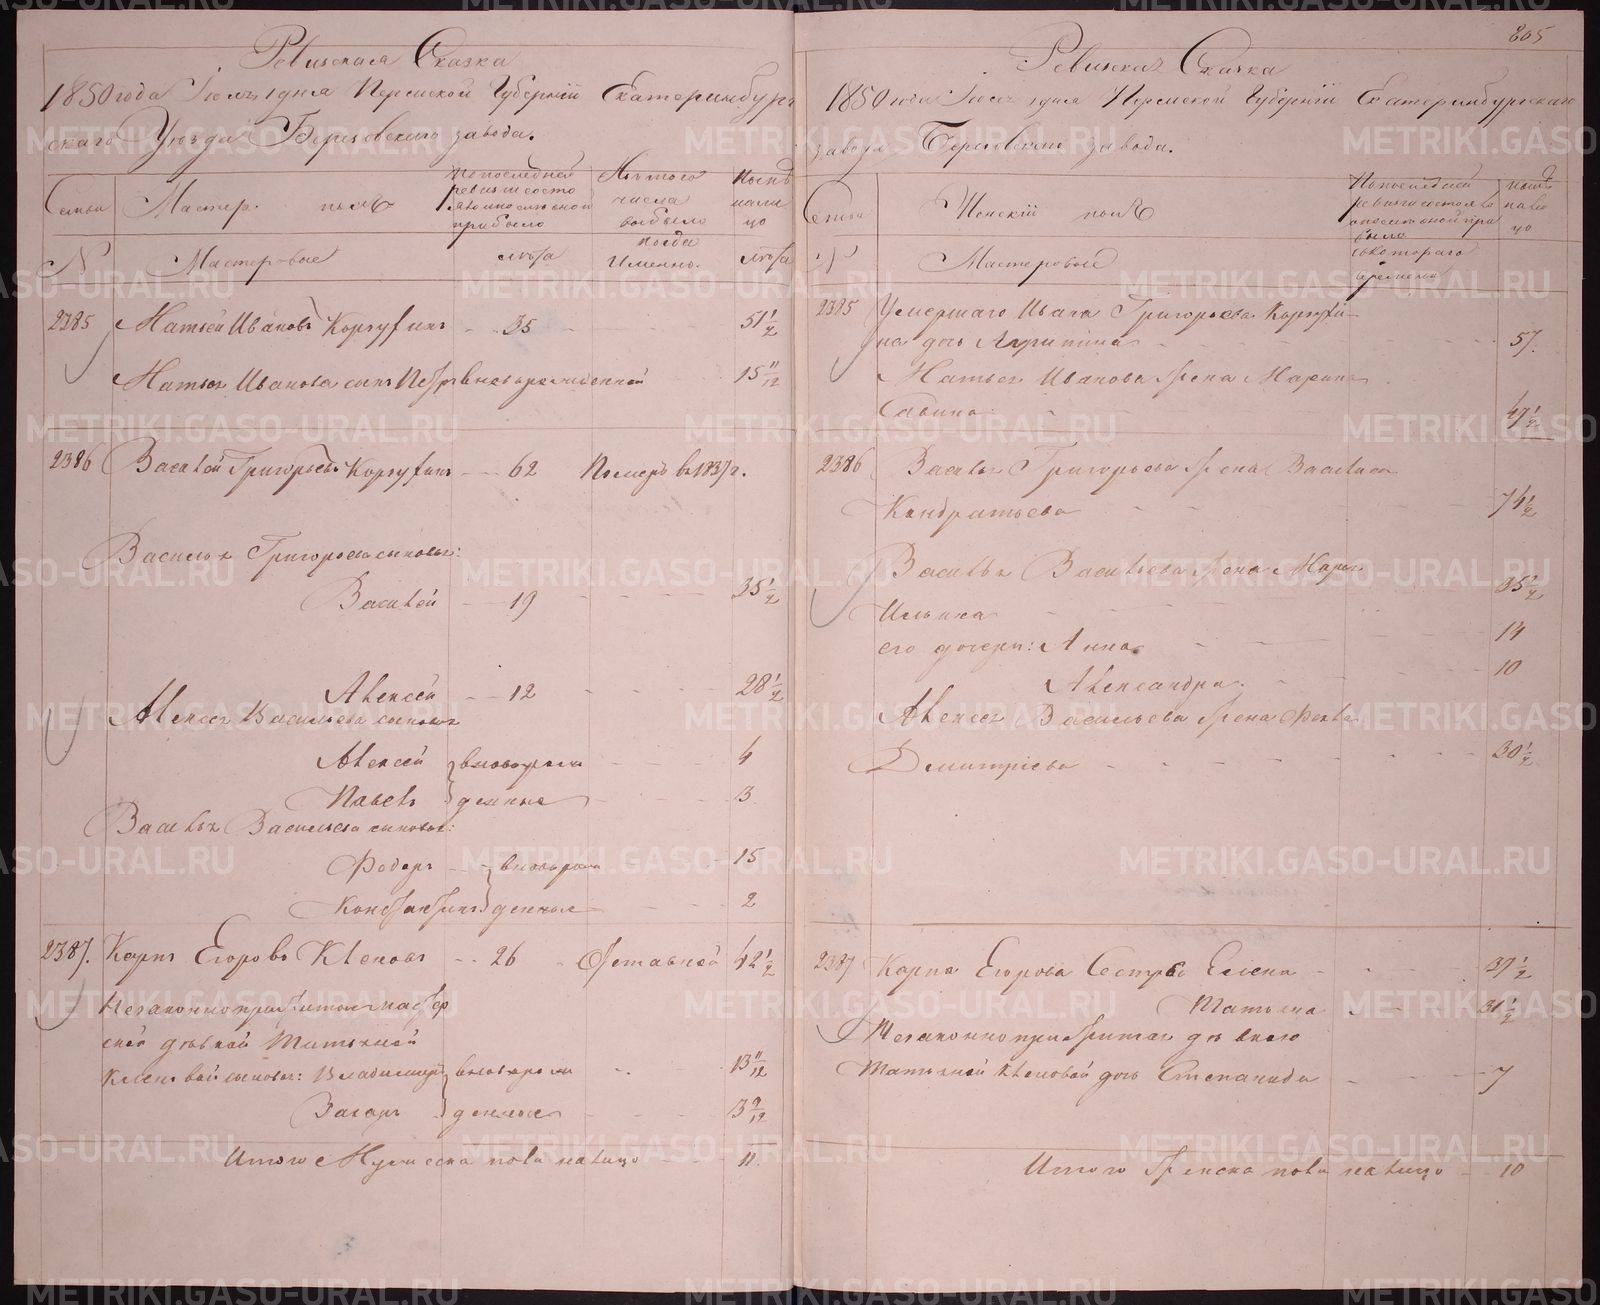 Ревизская Сказка
1850 года Июля 1 дня Пермской Губернии Екатеринбург
скаго Уезда Березовского завода.
Семьи
Мастер. полъ
По последней
ревизии состо
яло и после оной
прибыло
Изъ того
числа
выбыло
Ныне
нали
цо
№
Мастеровые
лета
когда
Именно.
лета
2385 Матвей Ивановъ Корзухинъ 35 51 1/2
Матвея Иванова сынъ Петръ вновьрожденной 15 11/12
2386 Василей Григорьевъ Корзухинъ 62 Померъ в 1837 г.
Василья Григорьева сыновья:
Василей 19 35 1/2
Алексей 12 28 1/2
Алексея Васильева сыновья
Алексей вновьрож 4
Павелъ денные 3
Василья Васильева сыновья:
Федоръ вновьрож 15
Константинъ денные 2
2387. Карпъ Егоровъ Клековъ 26 Отставной 42 1/2
Незаконноприжитыя мастер
ской девкой Татьяной
сыновья: Владимиръ вновьрож 13 11/12
Захаръ денные 3 9/12
Итого Мужеска пола налицо 11.
805
Ревизская Сказка
1850 года Июля 1 дня Пермской Губернии Екатеринбургскаго
завода Березовского завода.
Семьи
Женский полъ
По последней
ревизии состояло
и после оной при
было
ныне
нали
цо
№
Мастеровые
съ котораго
времени
2385 Умершаго Ивана Григорьева Корзухи-
на дочь Агрипина 57.
Матвея Иванова жена Марина
Савина 49 1/2
2386 Василья Григорьева жена Василиса
Кондратьева 74 1/2
Василья Васильева жена Марья
Ильина 35 1/2
его дочери: Анна 14
Александра. 10
Алексея Васильева жена Фекла
Дмитриева 30 1/2
2387 Карпа Егорова Сестры Елена 39 1/2
Татьяна 31 1/2
Незаконноприжитая девкою
Татьяной Клековой дочь Степанида 7
Итого Женска пола налицо 10
METRIKI.GASO-URAL.RU